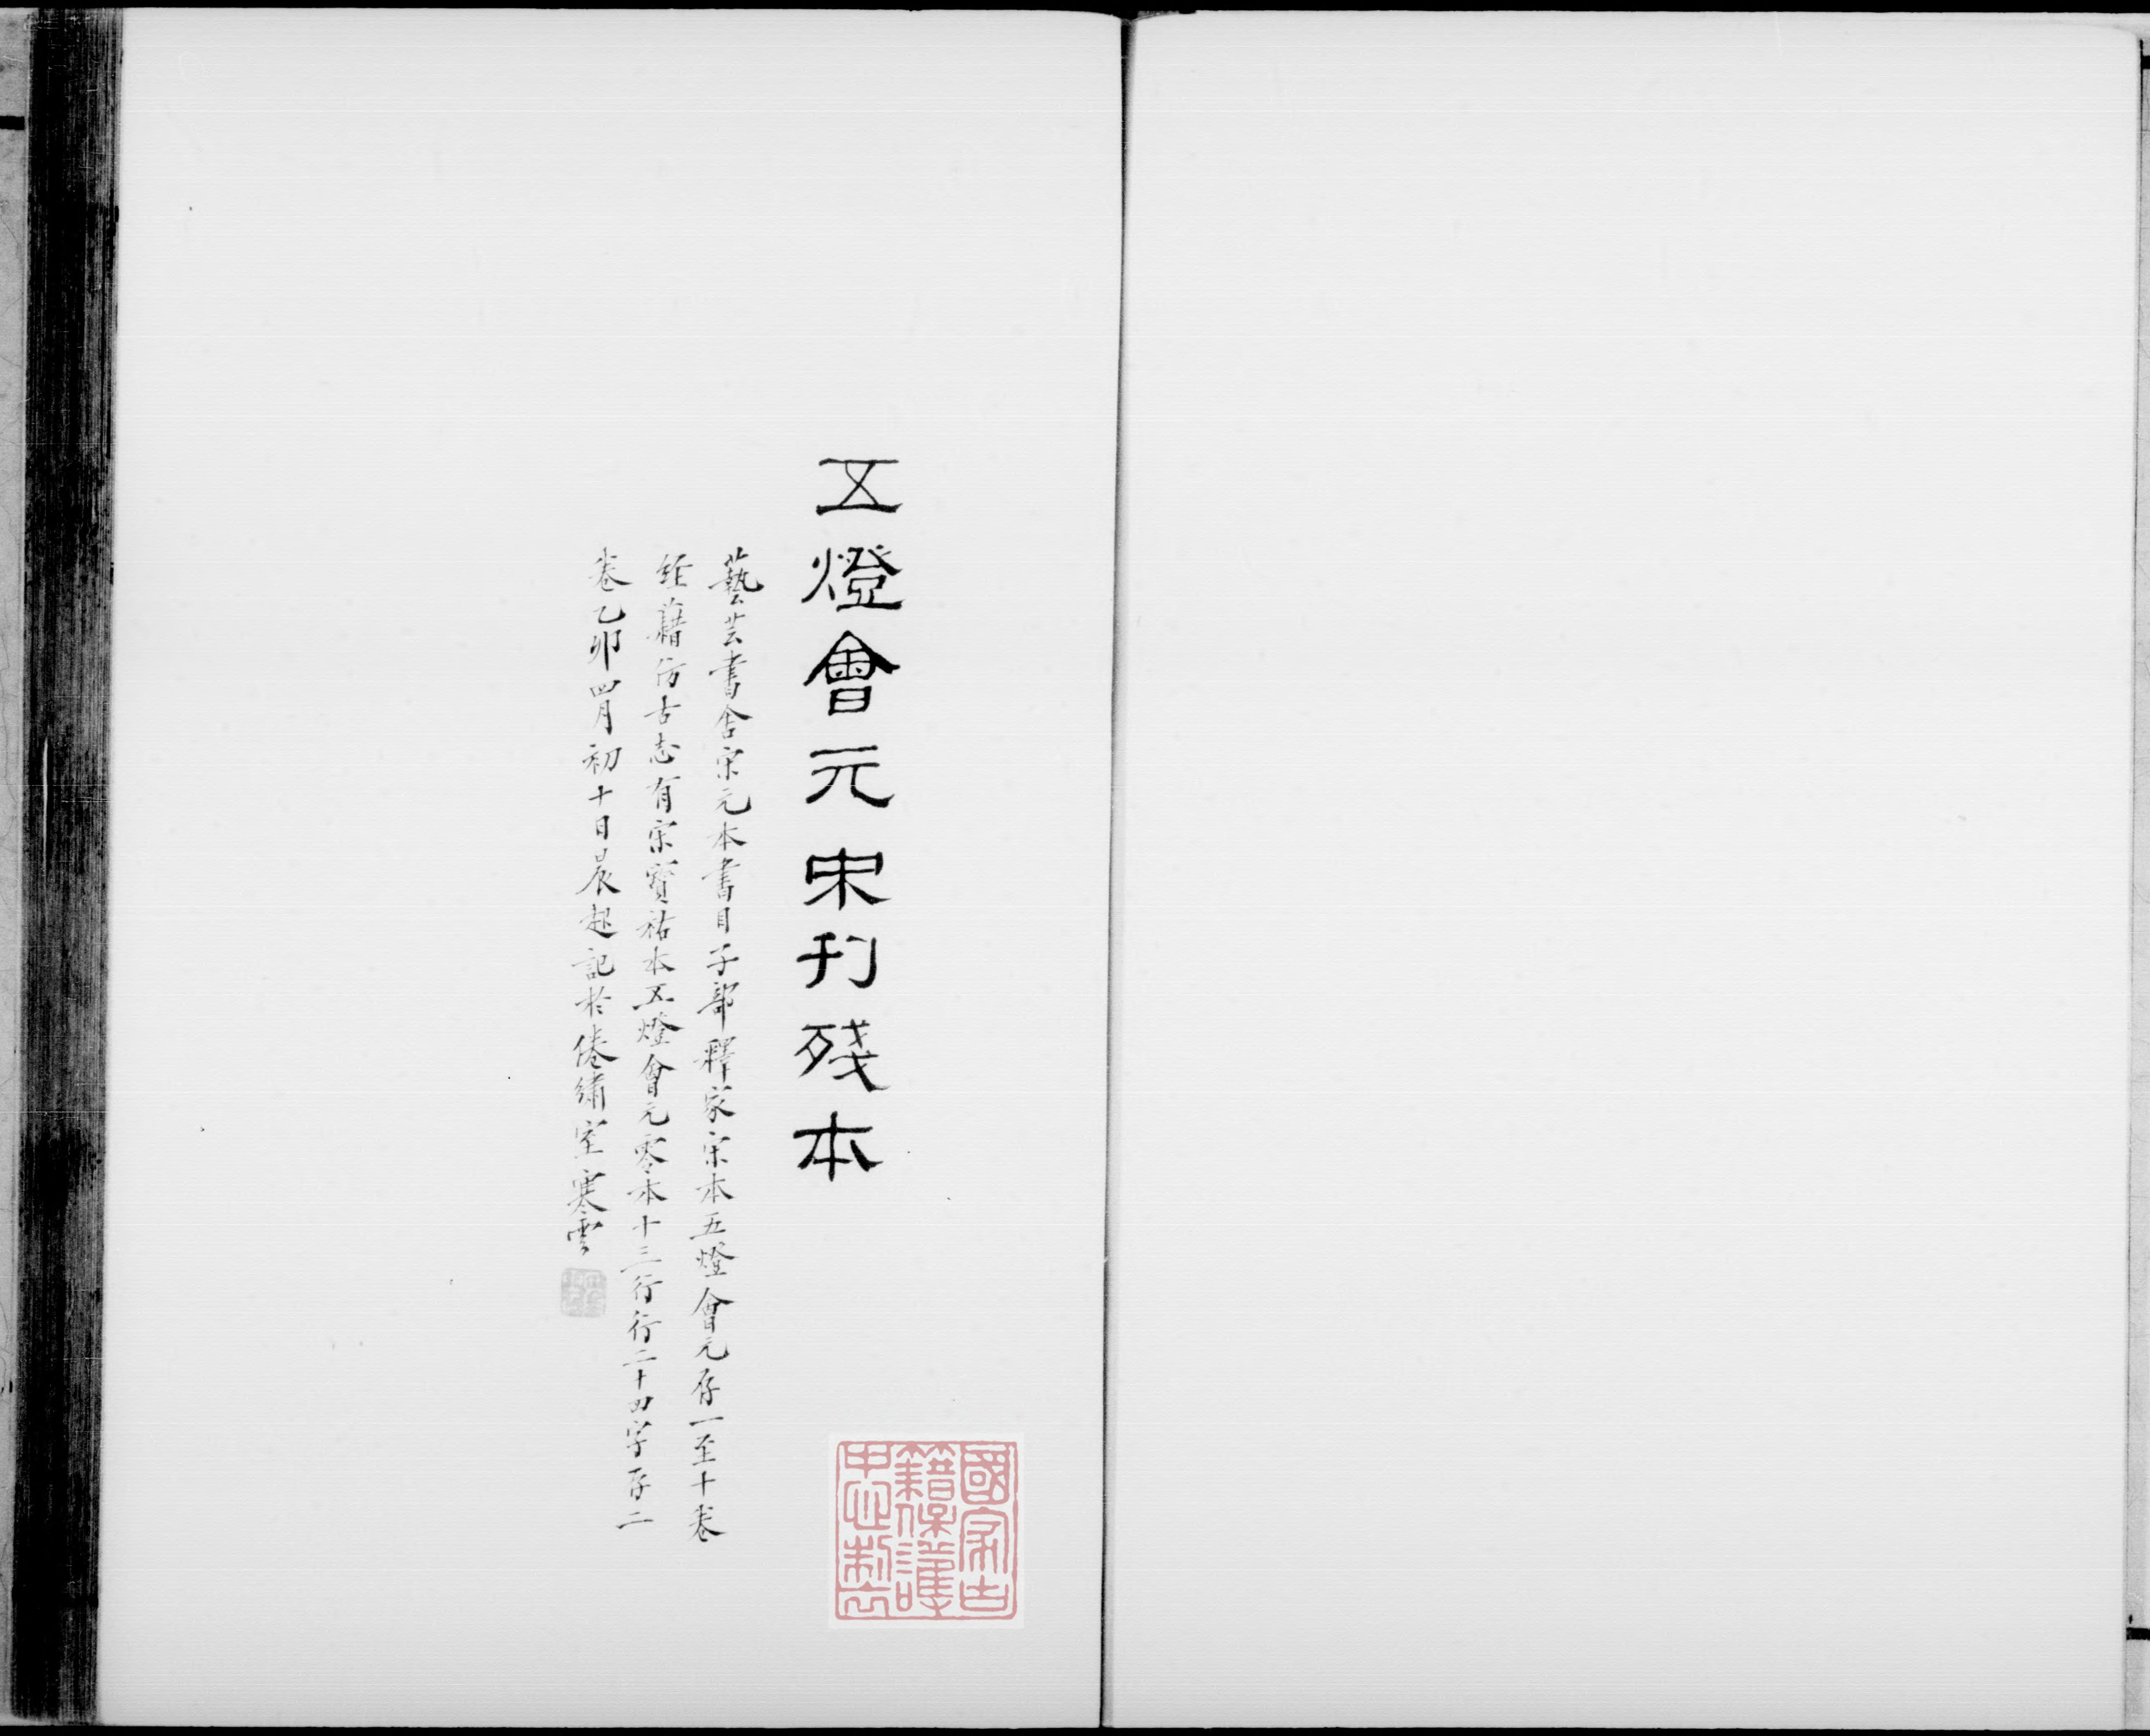 五燈會元宋刊殘本
藝芸書舍宋元本書目子部釋家宋本五燈會元存一至十卷
經籍仿古志有宋寶祐本五燈會元零本十三行行二十四字存二
卷乙卯四月初十日晨起記於倦繡室寒雲
國家古
籍保護
中心制